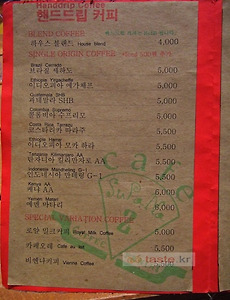 Handdrip Coffee
핸드드립 커피
BLEND COFFEE
하우스 블랜드 House Blend 4,000
SINGLE ORIGIN COFFEE
Brazil Cerrado
브라질 세하도 5,000
Ethiopia Yirgacheffe
이디오피아 예가체프 5,000
Guatemala SHB
과테말라 SHB 5,000
Colombia Supremo
콜롬비아 수프리모 5,000
Costa Rica Tarrazu
코스타리카 따라주 5,500
Ethiopia Harrar
이디오피아 모카 하라 5,500
Tanzania Kilimanjaro AA
탄자니아 킬리만자로 AA 5,500
Indonesia Mandheling G-1
인도네시아 만데링 G-1 5,500
Kenya AA
케냐 AA 6,000
Yemen Matari
예멘 마타리 6,000
SPECIAL VARIATION COFFEE
로얄 밀크커피 Royal Milk Coffee 5,500
카페오레 Cafe au lait 5,500
비엔나커피 Vienna Coffee
cafe
taste.kr